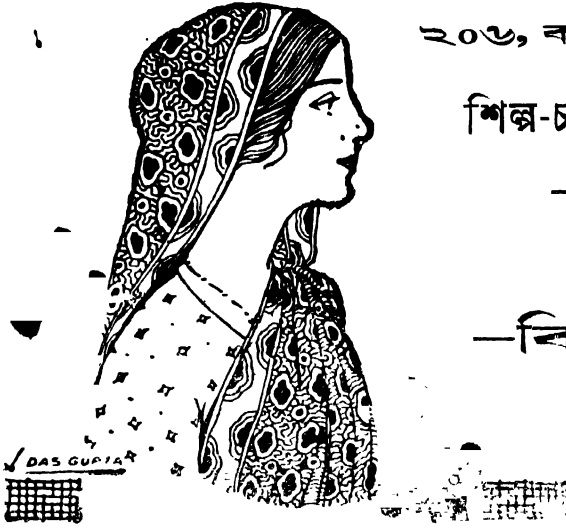 ২০৬, ব
শিল্প-চ
DAS GUPTA